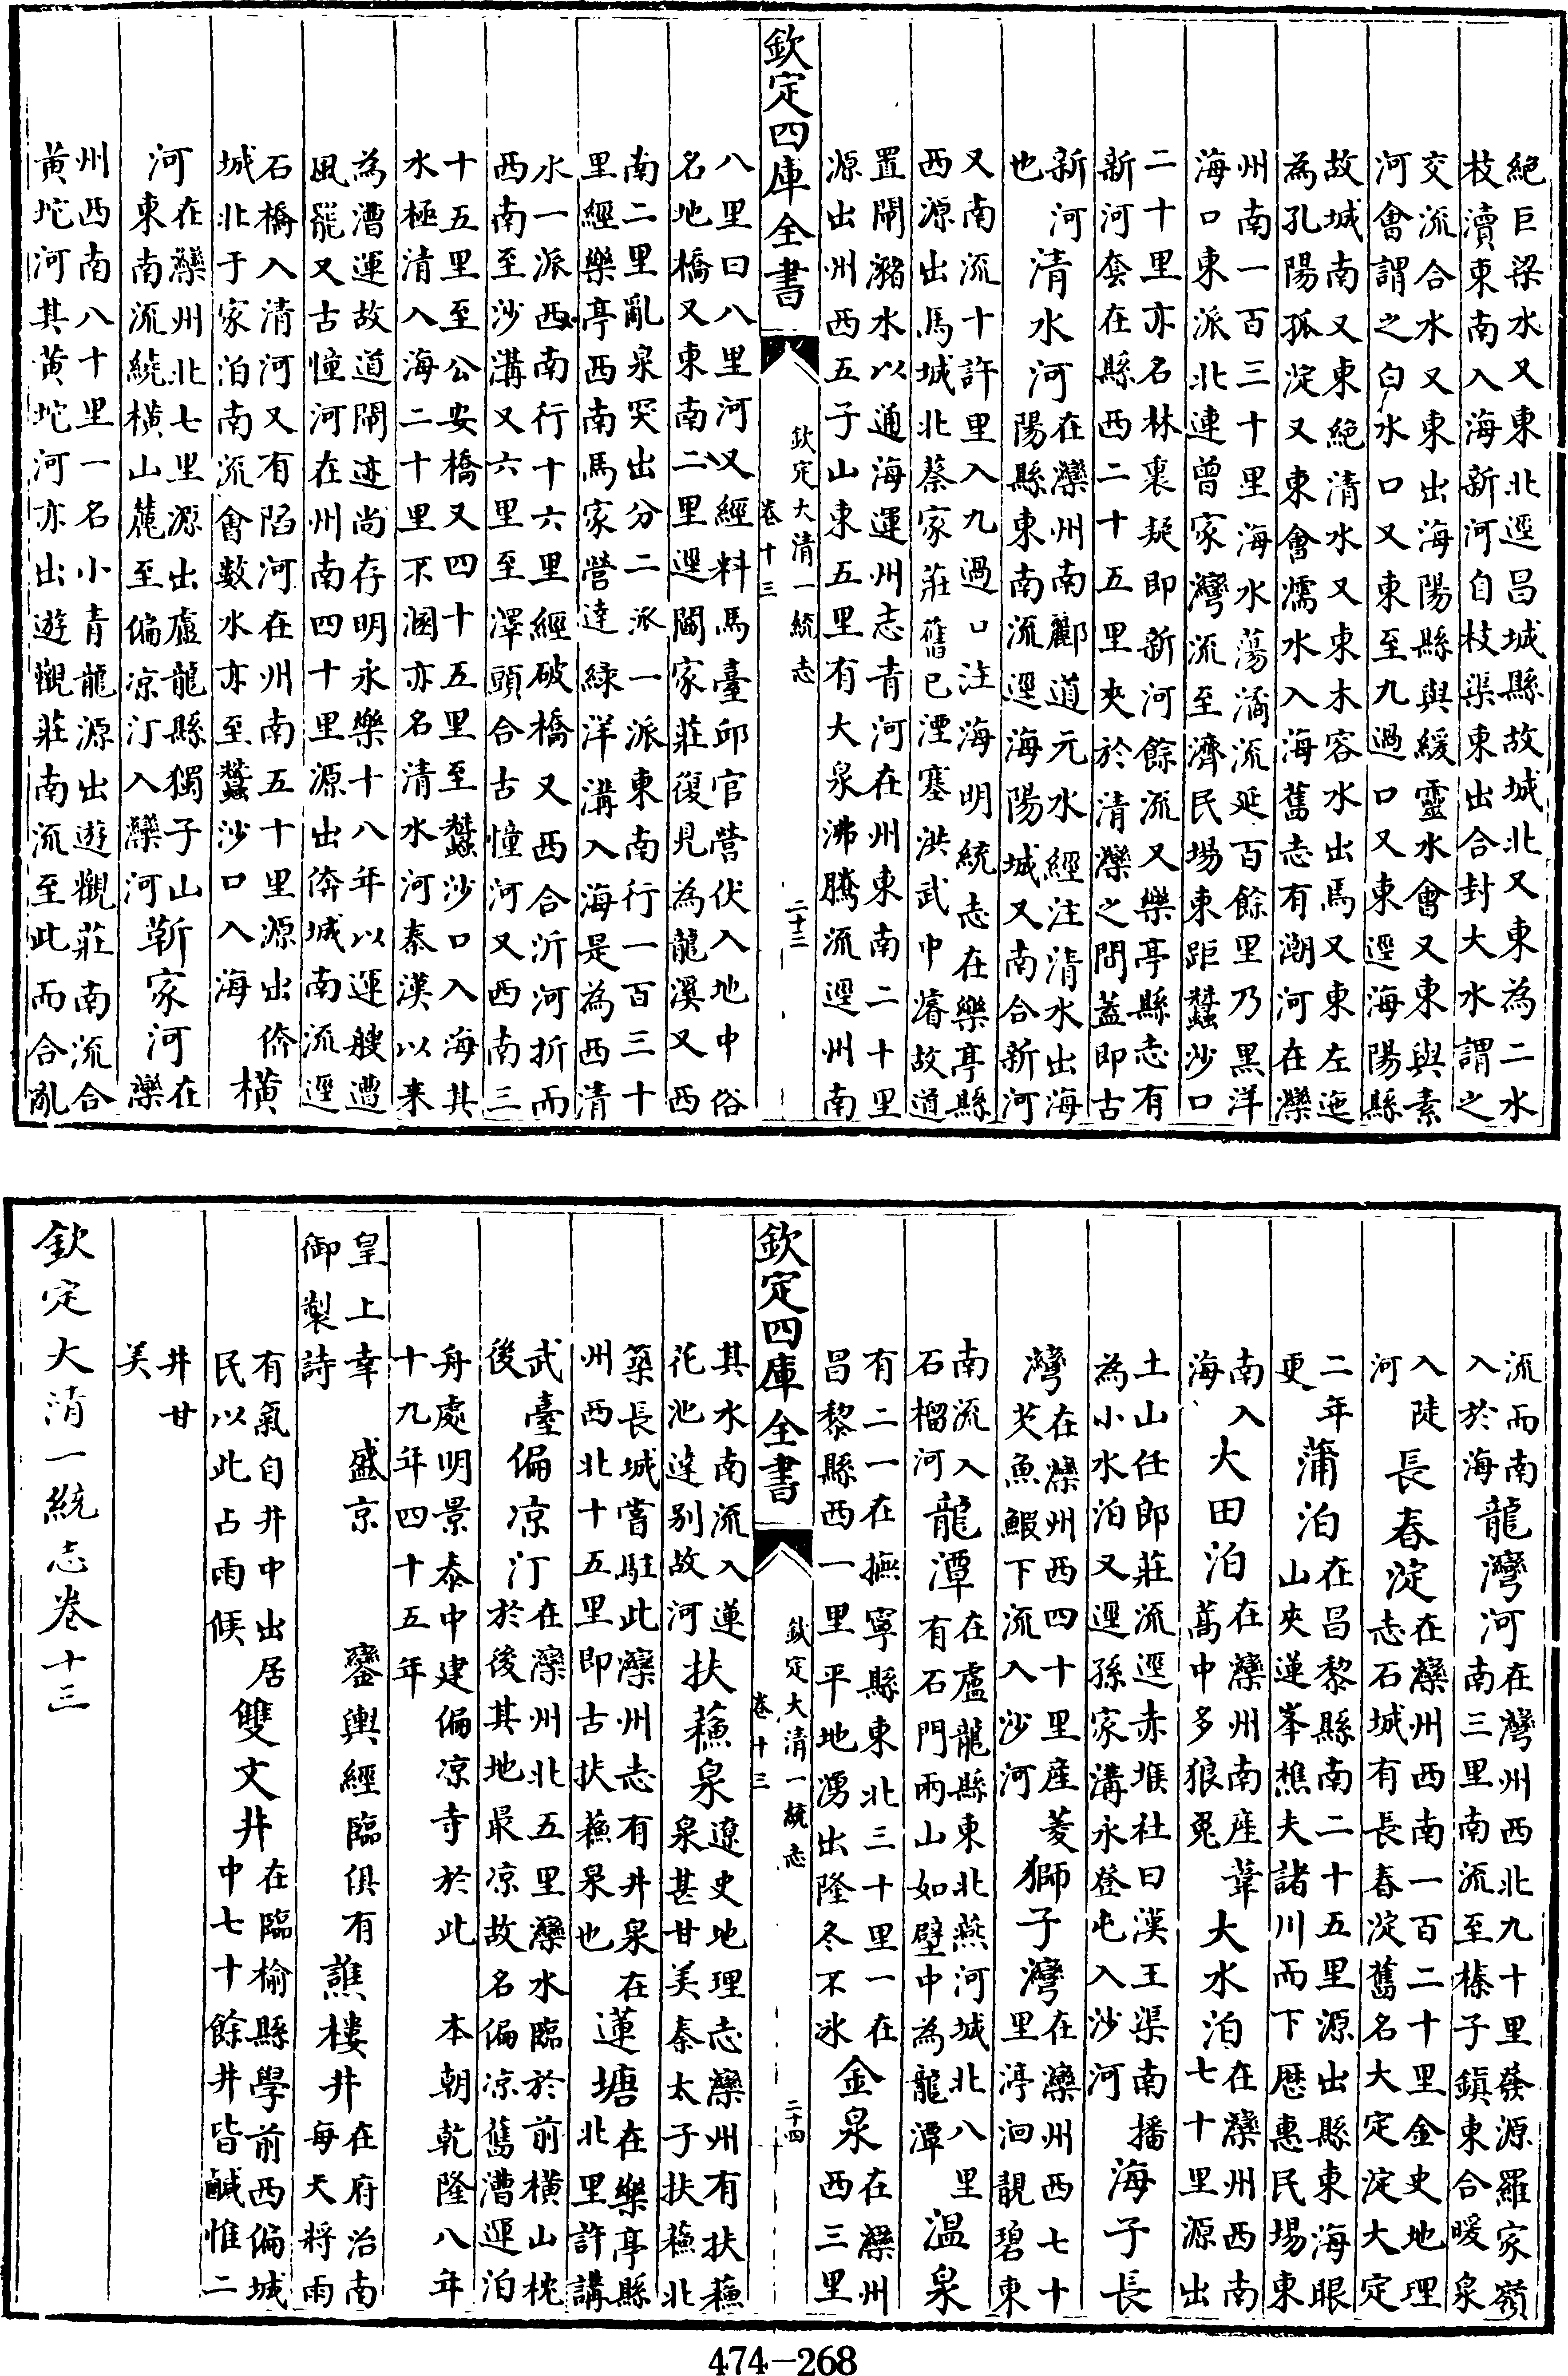 絶巨梁水又東北逕昌城縣故城北又東為二水
枝瀆東南入海新河自枝渠東出合封大水謂之
交流合水又東出海陽縣與緩靈水會又東與素
河會謂之白水口又東至九過口又東逕海陽縣
故城南又東絶清水又東木容水出焉又東左迤
為孔陽孤淀又東會濡水入海舊志有潮河在灤
州南一百三十里海水蕩潏流延百餘里乃黒洋
海口東派北連曾家灣流至濟民場東距蠶沙口
二十里亦名林裏疑即新河餘流又樂亭縣志有
新河套在縣西二十五里夾於清灤之間蓋即古
新河
也
清水河
在灤州南酈道元水經注清水出海
陽縣東南流逕海陽城又南合新河
又南流十許里入九過口注海明統志在樂亭縣
西源出馬城北蔡家莊舊已湮塞洪武中濬故道
置閘瀦水以通海運州志青河在州東南二十里
源出州西五子山東五里有大泉沸騰流逕州南
欽定四庫全書
欽定大清一統志
卷十三
二十三
八里曰八里河又經料馬臺邱官營伏入地中俗
名地橋又東南二里逕閻家莊復見為龍溪又西
南二里亂泉突出分二派一派東南行一百三十
里經樂亭西南馬家營達緑洋溝入海是為西清
水一派西南行十六里經破橋又西合沂河折而
西南至沙溝又六里至澤頭合古憧河又西南三
十五里至公安橋又四十五里至蠶沙口入海其
水極清入海二十里不溷亦名清水河秦漢以來
為漕運故道閘迹尚存明永樂十八年以運艘遭
風罷又古憧河在州南四十里源出侪城南流逕
石橋入清河又有陷河在州南五十里源出侪
城北于家泊南流會數水亦至蠶沙口入海
橫
河
在灤州北七里源出盧龍縣獨子山
東南流繞橫山麓至偏凉汀入灤河
靳家河
在
灤
州西南八十里一名小青龍源出遊觀莊南流合
黄坨河其黄坨河亦出遊觀莊南流至此而合亂
流而南
入於海
龍灣河
在灣州西北九十里發源羅家嶺
南三里南流至榛子鎮東合暖泉
入陡
河
長春淀
在灤州西南一百二十里金史地理
志石城有長春淀舊名大定淀大定
二年
更
蒲泊
在昌黎縣南二十五里源出縣東海眼
山夾蓮峯樵夫諸川而下厯惠民場東
南入
海
大田泊
在灤州南産葦
蒿中多狼兎
大水泊
在灤州西南
七十里源出
土山任郎莊流逕赤堠社曰漢王渠南播
為小水泊又逕孫家溝永登屯入沙河
海子長
灣
在灤州西四十里産菱
芡魚鰕下流入沙河
獅子灣
在灤州西七十
里渟洄靚碧東
南流入
石榴河
龍潭
在盧龍縣東北燕河城北八里
有石門兩山如壁中為龍潭
温泉
有二一在撫寧縣東北三十里一在
昌黎縣西一里平地湧出隆冬不冰
金泉
在灤州
西三里
欽定四庫全書
欽定大清一統志
卷十三
二十四
其水南流入蓮
花池達别故河
扶蘓泉
遼史地理志灤州有扶蘓
泉甚甘美秦太子扶蘓北
築長城嘗駐此灤州志有井泉在
州西北十五里即古扶蘓泉也
蓮塘
在樂亭縣
北里許講
武臺
後
偏凉汀
在灤州北五里灤水臨於前橫山枕
於後其地最凉故名偏凉舊漕運泊
舟處明景泰中建偏凉寺於此 本朝乾隆八年
十九年四十五年
皇上幸 盛京 鑾輿經臨俱有
御製詩
譙樓井
在府治南
每天將雨
有氣自井中出居
民以此占雨候
雙文井
在臨榆縣學前西偏城
中七十餘井皆鹹惟二
井甘
美
欽定大清一統志卷十三
474-268